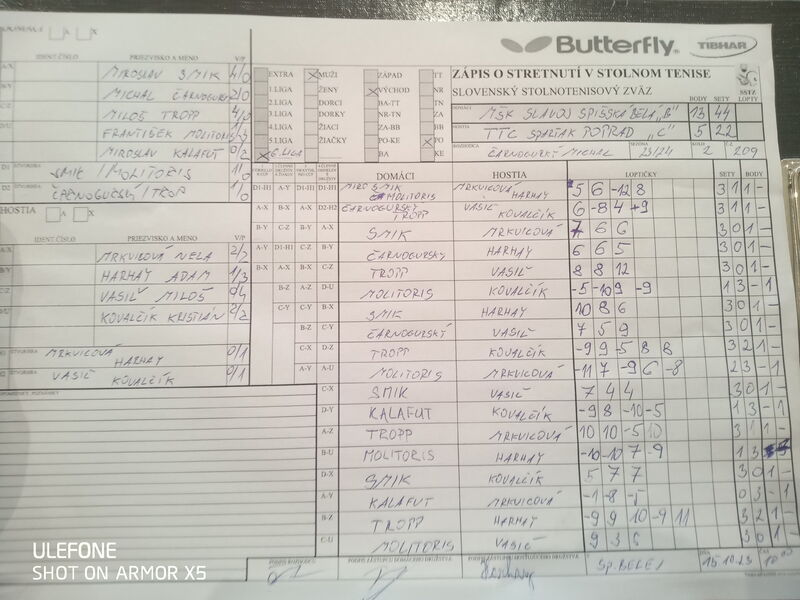 Butterfly TIBHAR
IDENT ČÍSLO PRIEZVISKO A MENO V/P
A/X MIROSLAV SMIK 4/0
B/Y MICHAL ČARNOGURSKÝ 2/0
C/Z MILOŠ TROPP 4/0
D/U FRANTIŠEK MOLITORIS
MIROSLAV KALAFUT 0/2
D1 ŠTVORHRA SMIK / MOLITORIS 1/0
D2 ŠTVORHRA ČARNOGURSKÝ / TROPP 1/0
HOSTIA A X
IDENT ČÍSLO PRIEZVISKO A MENO V/P
A/X MRKVICOVÁ NELA 2/2
B/Y HARHAY ADAM 1/3
C/Z VASIĽ MILOŠ 0/4
KOVALČÍK KRISTIÁN 2/2
ŠTVORHRA MRKVICOVÁ HARHAY 0/1
ŠTVORHRA VASIĽ KOVALČÍK 0/1
EXTRA MUŽI ZÁPAD TT
1.LIGA ŽENY VÝCHOD NR
2.LIGA DORCI BA-TT TN
3.LIGA DORKY NR-TN ZA
4.LIGA ŽIACI ZA-BB BB
5.LIGA ŽIAČKY PO-KE PO
6.LIGA BA KE
ZÁPIS O STRETNUTÍ V STOLNOM TENISE
SLOVENSKÝ STOLNOTENISOVÝ ZVÄZ
SSTZ
DOMÁCI MŠK SLAVOJ SPIŠSKÁ BELÁ „B" BODY 13 SETY 44 LOPTY
HOSTIA TTC SPARTAK POPRAD „C" 5 22
ROZHODCA ČARNOGURSKÝ MICHAL SEZÓNA 23/24 KOLO 2 Č. 209
DOMÁCI HOSTIA LOPTIČKY SETY BODY
D1-H1 A-Y D1-H1 D1-H1 MIRO SMIK MOLITORIS MRKVICOVÁ HARHAY 5 6 -12 8 3 1 1 -
A-X B-X A-X D2-H2 ČARNOGURSKÝ TROPP VASIĽ KOVALČÍK 6 -8 4 +9 3 1 1 -
B-Y C-Z B-Y A-X SMIK MRKVICOVÁ 7 6 6 3 0 1 -
A-Y D1-H1 C-Z B-Y ČARNOGURSKÝ HARHAY 6 6 5 3 0 1 -
B-X A-X B-X C-Z TROPP VASIĽ 8 8 12 3 0 1 -
B-Z A-Z D-U MOLITORIS KOVALČÍK -5 -10 9 -9 1 3 - 1
C-Y B-X SMIK HARHAY 10 8 6 3 0 1 -
B-Z C-Y ČARNOGURSKÝ VASIĽ 7 5 9 3 0 1 -
C-X D-Z TROPP KOVALČÍK -9 9 -5 8 8 3 2 1 -
A-Y A-U MOLITORIS MRKVICOVÁ -11 7 -9 6 -8 2 3 - 1
C-X SMIK VASIĽ 7 4 4 3 0 1 -
D-Y KALAFUT KOVALČÍK -9 8 -10 -5 1 3 - 1
A-Z TROPP MRKVICOVÁ 10 10 -5 10 3 1 1 -
B-U MOLITORIS HARHAY -10 -10 7 -9 1 3
D-X SMIK KOVALČÍK 5 7 7 3 0 1 -
A-Y KALAFUT MRKVICOVÁ -1 -8 -5 0 3 - 1
B-Z TROPP HARHAY -9 9 10 -9 11 3 2 1 -
C-U MOLITORIS VASIĽ 9 3 6 3 0 1 -
PODPIS ROZHODCU PODPIS VEDÚCEHO DOMÁCEHO DRUŽSTVA PODPIS VEDÚCEHO HOSŤUJÚCEHO DRUŽSTVA SP. BELEJ DŇA 15.10.23 ČAS
ULEFONE
SHOT ON ARMOR X5